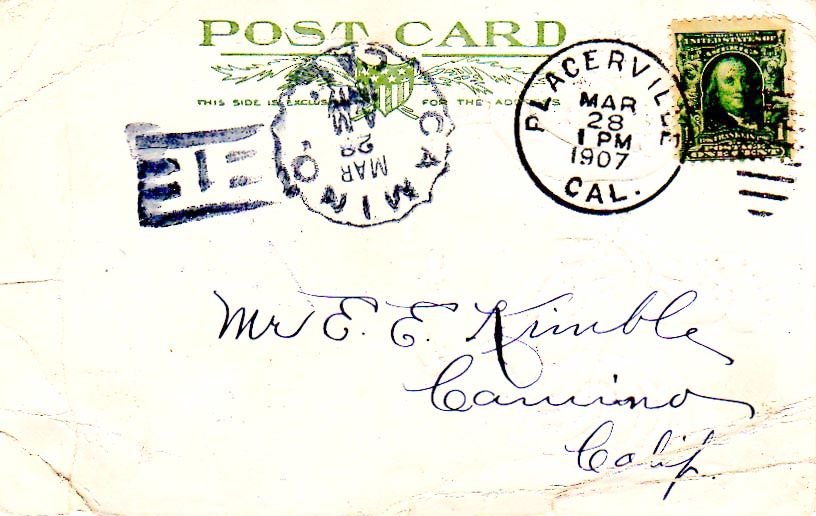 POST CARD
THIS SIDE IS EXCLUS FOR THE ADDRESS
PLACERVILLE
MAR
28
1 PM
1907
CAL.
CAMINO
CAL.
MAR
28
AM
1
UNITED STATES OF
FRANKLIN
POSTAGE
1 ONE CENT 1
Mr E. E. Kimble
Camino
Calif.